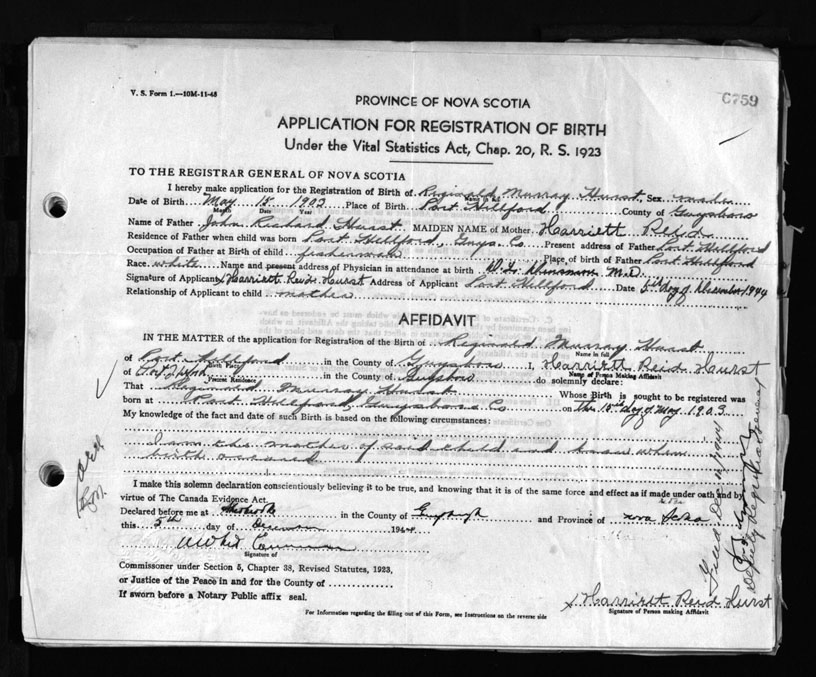 V. S. Form 1.—10M-11-43
C759
PROVINCE OF NOVA SCOTIA
APPLICATION FOR REGISTRATION OF BIRTH
Under the Vital Statistics Act, Chap. 20, R. S. 1923
TO THE REGISTRAR GENERAL OF NOVA SCOTIA
I hereby make application for the Registration of Birth of Reginald Murray Hurst, Sex male
Name in full
Date of Birth May 15 1903 Place of Birth Port Hillford, County of Guysboro
Month Date Year
Name of Father John Richard Hurst MAIDEN NAME of Mother Harriett Reid
Residence of Father when child was born Port Hillford, Guys. Co Present address of Father Port Hillford
Occupation of Father at Birth of child fisherman Place of birth of Father Port Hillford
Race white Name and present address of Physician in attendance at birth M.D.
Signature of Applicant x Harriett Reid Hurst Address of Applicant Port Hillford Date 5th day of December 1944
Relationship of Applicant to child mother
AFFIDAVIT
IN THE MATTER of the application for Registration of the Birth of Reginald Murray Hurst
Name in full
of Port Hillford in the County of Guysboro I, Harriett Reid Hurst
Birth Place Name of Person Making Affidavit
of Port Hilford in the County of Guysboro do solemnly declare:
Present Residence
That Raymond Murray Hurst Whose Birth is sought to be registered was
born at Port Hillford, Guysboro Co on The 15th day of May 1903
My knowledge of the fact and date of such Birth is based on the following circumstances:
I am the mother of said child and know when
birth occured
I make this solemn declaration conscientiously believing it to be true, and knowing that it is of the same force and effect as if made under oath and by
virtue of The Canada Evidence Act.
Declared before me at in the County of and Province of Nova Scotia
this 5th day of December 1944
Signature of
Commissioner under Section 5, Chapter 38, Revised Statutes, 1923,
or Justice of the Peace in and for the County of
If sworn before a Notary Public affix seal.
x Harriett Reid Hurst
Signature of Person making Affidavit
For Information regarding the filling out of this Form, see Instructions on the reverse side
Filed Dec
Deputy Registrar General